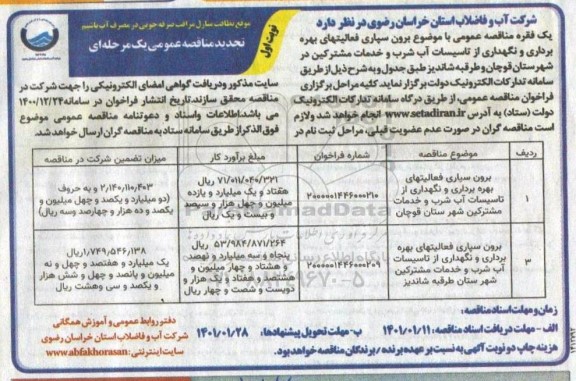 شرکت آب و فاضلاب استان خراسان رضوی در نظر دارد
موقع نظافت منازل مراقب صرفه جویی در مصرف آب باشیم
تجدید مناقصه عمومی یک مرحله ای
نوبت اول
یک فقره مناقصه عمومی با موضوع برون سپاری فعالیتهای بهره
برداری و نگهداری از تاسیسات آب شرب و خدمات مشترکین در
شهرستان قوچان و طرقبه شاندیز طبق جدول و به شرح ذیل از طریق
سامانه تدارکات الکترونیک دولت برگزار نماید. کلیه مراحل برگزاری
فراخوان مناقصه عمومی، از طریق درگاه سامانه تدارکات الکترونیک
دولت (ستاد) به آدرس www.setadiran.ir انجام خواهد شد و لازم
است مناقصه گران در صورت عدم عضویت قبلی، مراحل ثبت نام در
سایت مذکور و دریافت گواهی امضای الکترونیکی را جهت شرکت در
مناقصه محقق سازند. تاریخ انتشار فراخوان در سامانه ۱۴۰۰/۱۲/۲۴
می باشد. اطلاعات و اسناد و دعوتنامه مناقصه عمومی موضوع
فوق الذکر از طریق سامانه ستاد به مناقصه گران ارسال خواهد شد.
ردیف موضوع مناقصه شماره فراخوان مبلغ برآورد کار میزان تضمین شرکت در مناقصه
۱ برون سپاری فعالیتهای بهره برداری و نگهداری از تاسیسات آب شرب و خدمات مشترکین شهر ستان قوچان ۲۰۰۰۰۰۱۴۴۶۰۰۰۲۱۰ ۷۱/۰۱۱/۰۴۰/۳۲۱ ریال هفتاد و یک میلیارد و یازده میلیون و چهل هزار و سیصد و بیست و یک ریال ۲٫۱۴۰٫۱۱۰٫۴۰۳ و به حروف (دو میلیارد و یکصد و چهل میلیون و یکصد و ده هزار و چهارصد وسه ریال)
۳ برون سپاری فعالیتهای بهره برداری و نگهداری از تاسیسات آب شرب و خدمات مشترکین شهر ستان طرقبه شاندیز ۲۰۰۰۰۰۱۴۴۶۰۰۰۲۰۹ ۵۳/۹۸۴/۸۷۱/۲۶۴ ریال پنجاه و سه میلیارد و نهصد و هشتاد و چهار میلیون و هشتصد و هفتاد و یک هزار و دویست و شصت و چهار ریال ۱٫۷۴۹٫۵۴۶٫۱۳۸ ریال یک میلیارد و هفتصد و چهل و نه میلیون و پانصد و چهل و شش هزار و یکصد و سی وهشت ریال
زمان و مهلت اسناد مناقصه:
الف - مهلت دریافت اسناد مناقصه: ۱۴۰۱/۰۱/۱۱ ب- مهلت تحویل پیشنهادها: ۱۴۰۱/۰۱/۲۸
هزینه چاپ دو نوبت آگهی به نسبت بر عهده برنده / برندگان مناقصه خواهد بود.
دفتر روابط عمومی و آموزش همگانی
شرکت آب و فاضلاب استان خراسان رضوی
سایت اینترنتی: www.abfakhorasan.ir